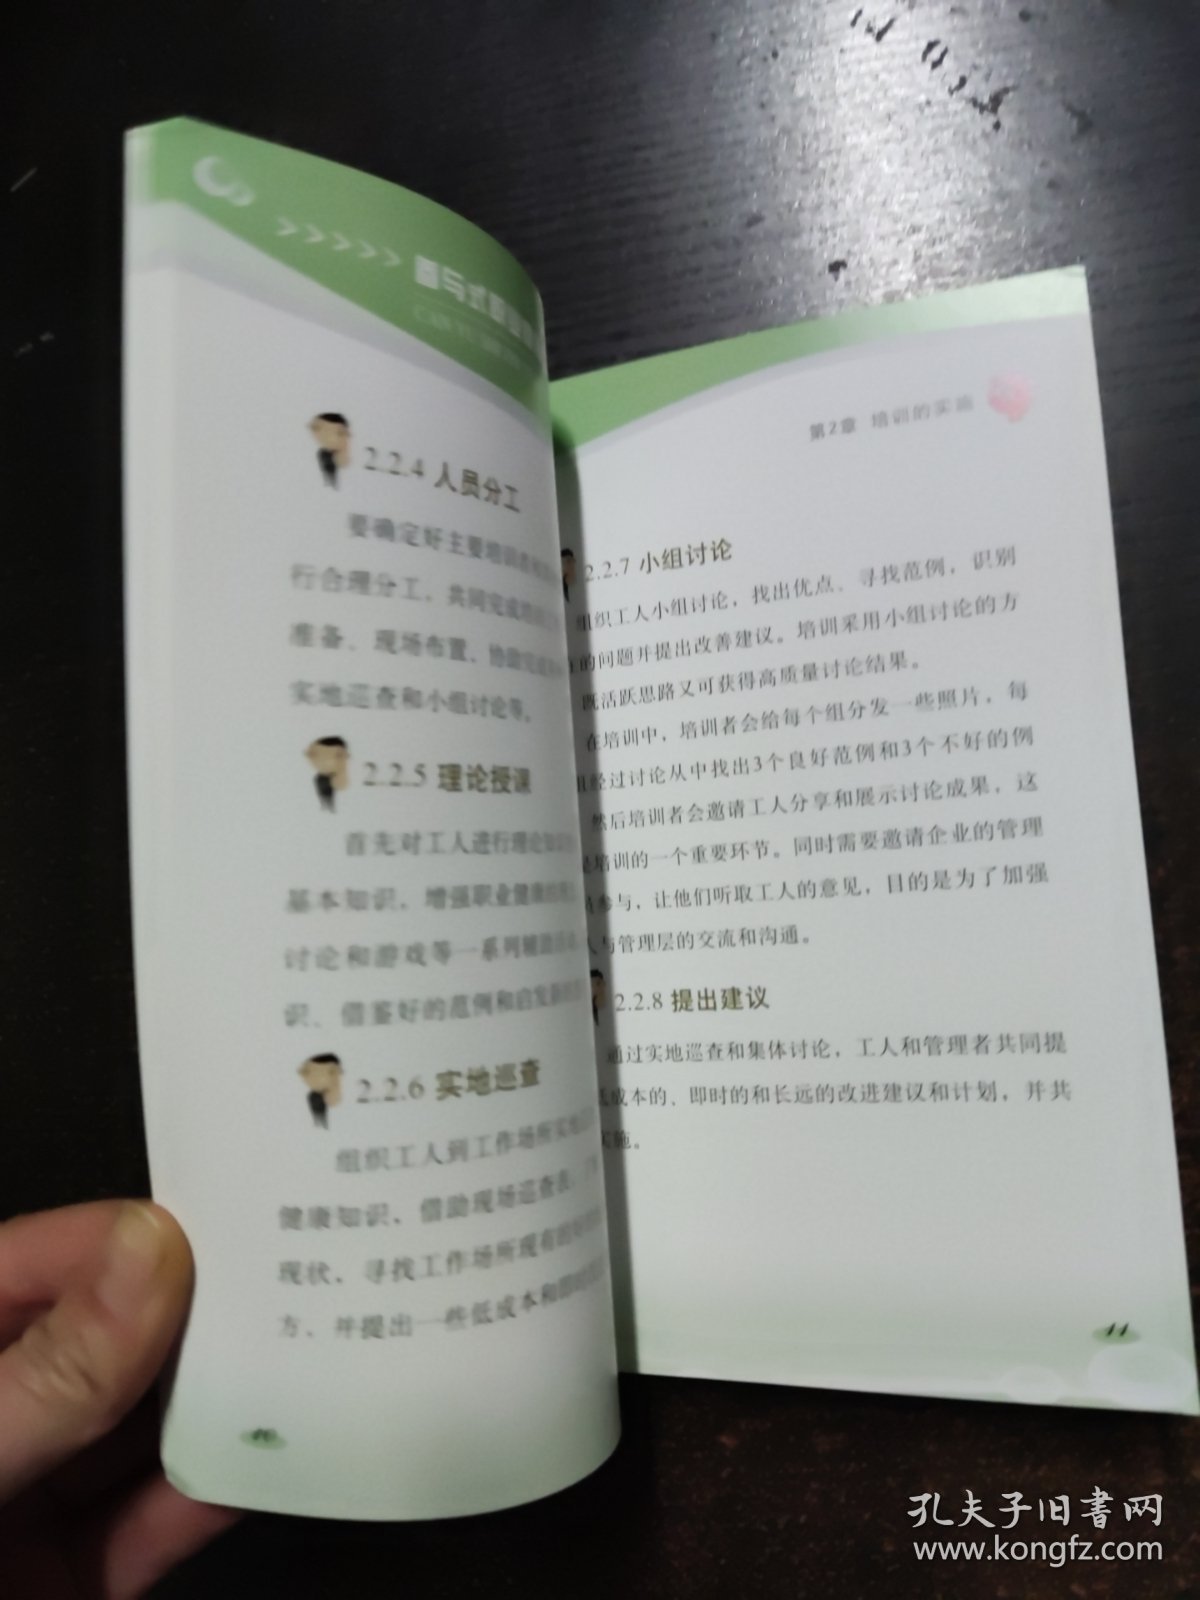 2.2.4 人员分工
要确定好主要培训者
行合理分工、共同完成
准备、现场布置、协助完成
实地巡查和小组讨论等。
2.2.5 理论授课
首先对工人进行理论知识
基本知识、增强职业健康
讨论和游戏等一系列辅助
识、借鉴好的范例和启发
2.2.6 实地巡查
组织工人到工作场所实地
健康知识、借助现场巡查表、
现状、寻找工作场所现有的
方、并提出一些低成本和即时
10
第2章 培训的实施
2.2.7 小组讨论
组织工人小组讨论，找出优点、寻找范例，识别
的问题并提出改善建议。培训采用小组讨论的方
既活跃思路又可获得高质量讨论结果。
在培训中，培训者会给每个组分发一些照片，每
组经过讨论从中找出3个良好范例和3个不好的例
然后培训者会邀请工人分享和展示讨论成果，这
是培训的一个重要环节。同时需要邀请企业的管理
参与，让他们听取工人的意见，目的是为了加强
人与管理层的交流和沟通。
2.2.8 提出建议
通过实地巡查和集体讨论，工人和管理者共同提
低成本的、即时的和长远的改进建议和计划，并共
实施。
11
孔夫子旧书网
www.kongfz.com